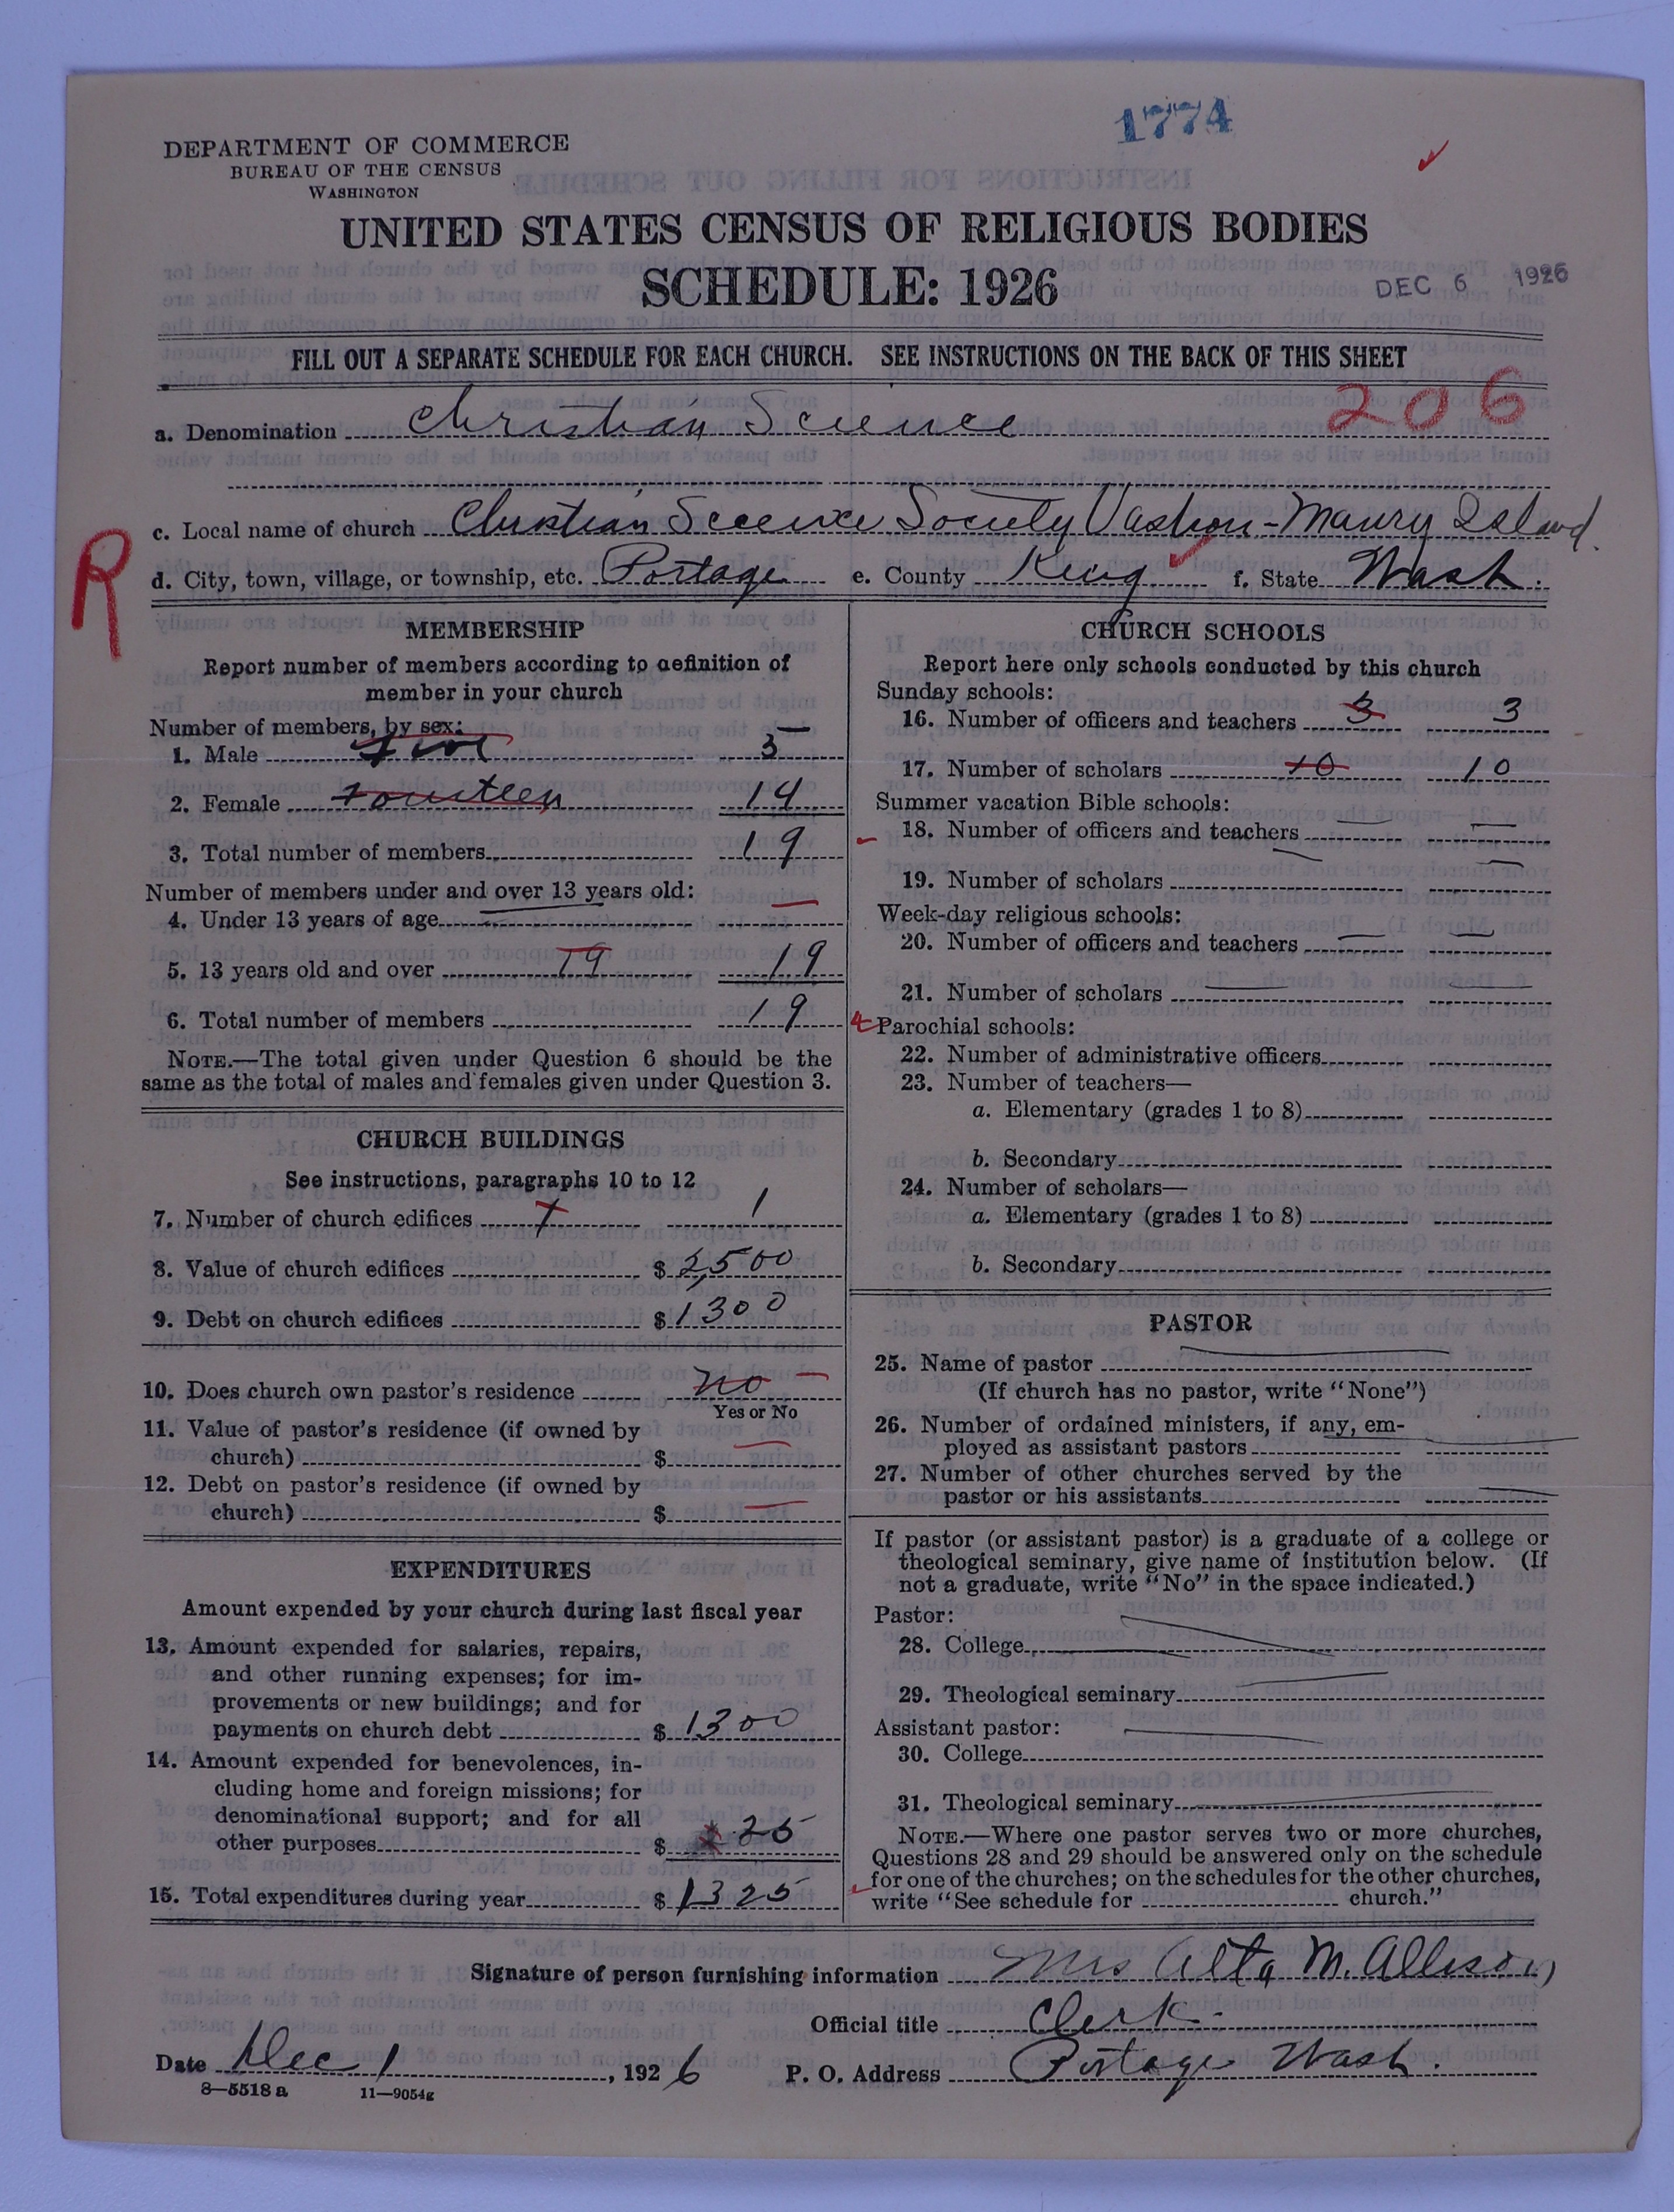 1774
DEPARTMENT OF COMMERCE
BUREAU OF THE CENSUS
WASHINGTON
UNITED STATES CENSUS OF RELIGIOUS BODIES
SCHEDULE: 1926
DEC 6 1926
FILL OUT A SEPARATE SCHEDULE FOR EACH CHURCH. SEE INSTRUCTIONS ON THE BACK OF THIS SHEET
206
a. Denomination Christian Science
c. Local name of church Christian Science Society Vashon-Maury Island.
R
d. City, town, village, or township, etc. Portage e. County King f. State Wash.
MEMBERSHIP
Report number of members according to definition of
member in your church
Number of members, by sex:
1. Male five 5
2. Female fourteen 14
3. Total number of members 19
Number of members under and over 13 years old:
4. Under 13 years of age —
5. 13 years old and over 19 19
6. Total number of members 19
NOTE.—The total given under Question 6 should be the
same as the total of males and females given under Question 3.
CHURCH BUILDINGS
See instructions, paragraphs 10 to 12
7. Number of church edifices 1 1
8. Value of church edifices $ 2500
9. Debt on church edifices $ 1300
10. Does church own pastor's residence no —
Yes or No
11. Value of pastor's residence (if owned by
church) $ —
12. Debt on pastor's residence (if owned by
church) $ —
EXPENDITURES
Amount expended by your church during last fiscal year
13. Amount expended for salaries, repairs,
and other running expenses; for im-
provements or new buildings; and for
payments on church debt $ 1300
14. Amount expended for benevolences, in-
cluding home and foreign missions; for
denominational support; and for all
other purposes $ 25
15. Total expenditures during year $ 1325
CHURCH SCHOOLS
Report here only schools conducted by this church
Sunday schools:
16. Number of officers and teachers 3 3
17. Number of scholars 10 10
Summer vacation Bible schools:
18. Number of officers and teachers — —
19. Number of scholars — —
Week-day religious schools:
20. Number of officers and teachers — —
21. Number of scholars — —
Parochial schools:
22. Number of administrative officers
23. Number of teachers—
a. Elementary (grades 1 to 8)
b. Secondary
24. Number of scholars—
a. Elementary (grades 1 to 8)
b. Secondary
PASTOR
25. Name of pastor —
(If church has no pastor, write "None")
26. Number of ordained ministers, if any, em-
ployed as assistant pastors —
27. Number of other churches served by the
pastor or his assistants —
If pastor (or assistant pastor) is a graduate of a college or
theological seminary, give name of institution below. (If
not a graduate, write "No" in the space indicated.)
Pastor:
28. College —
29. Theological seminary —
Assistant pastor:
30. College —
31. Theological seminary —
NOTE.—Where one pastor serves two or more churches,
Questions 28 and 29 should be answered only on the schedule
for one of the churches; on the schedules for the other churches,
write "See schedule for church."
Signature of person furnishing information Mrs Alta M. Allison
Official title Clerk
Date Dec 1, 1926 P. O. Address Portage Wash.
8—5518 a 11—9054g